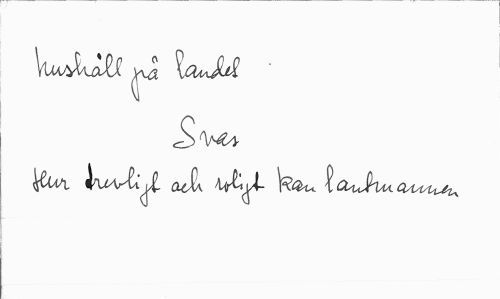 hushåll på landet
Svar
Hur trevligt och roligt kan lantmannen